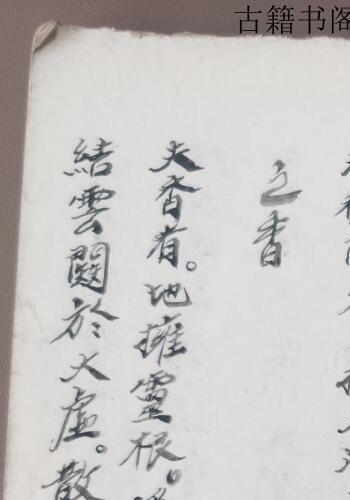 古籍书阁
之香
夫香者。地擁靈根。
結雲闕於大虛。散